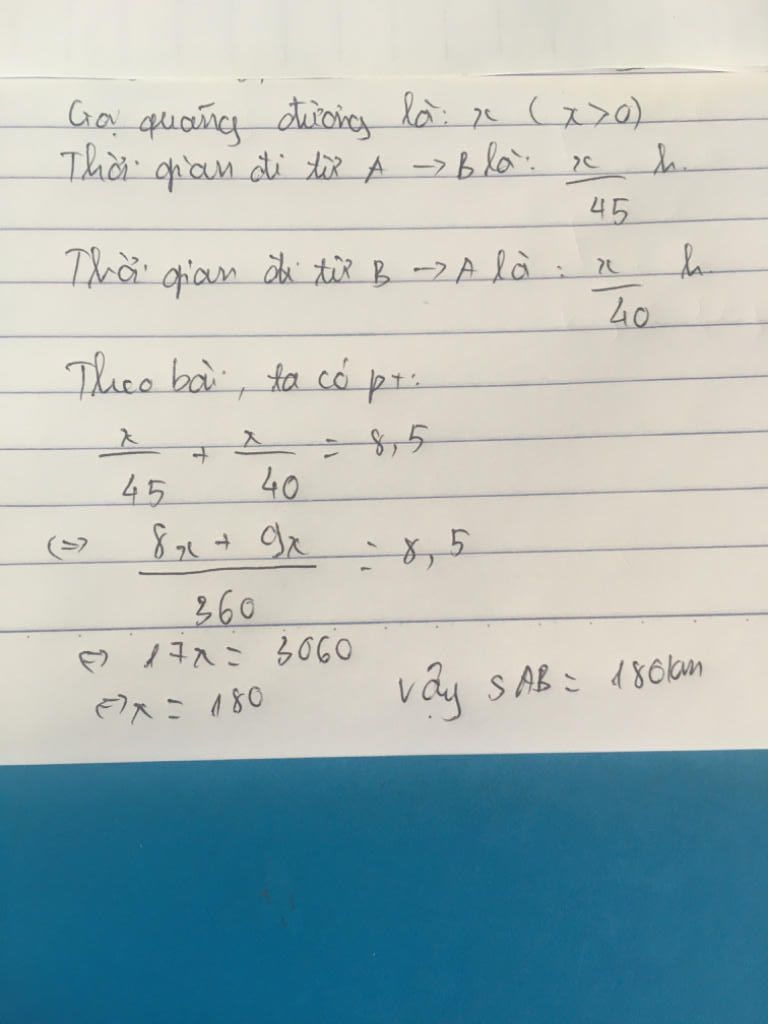 Gọi quãng đường là: x ( x > 0)
Thời gian đi từ A → B là: x/45 h.
Thời gian đi từ B → A là : x/40 h.
Theo bài, ta có pt:
x/45 + x/40 = 8,5
<=> (8x + 9x)/360 = 8,5
<=> 17x = 3060
<=> x = 180 Vậy SAB = 180km